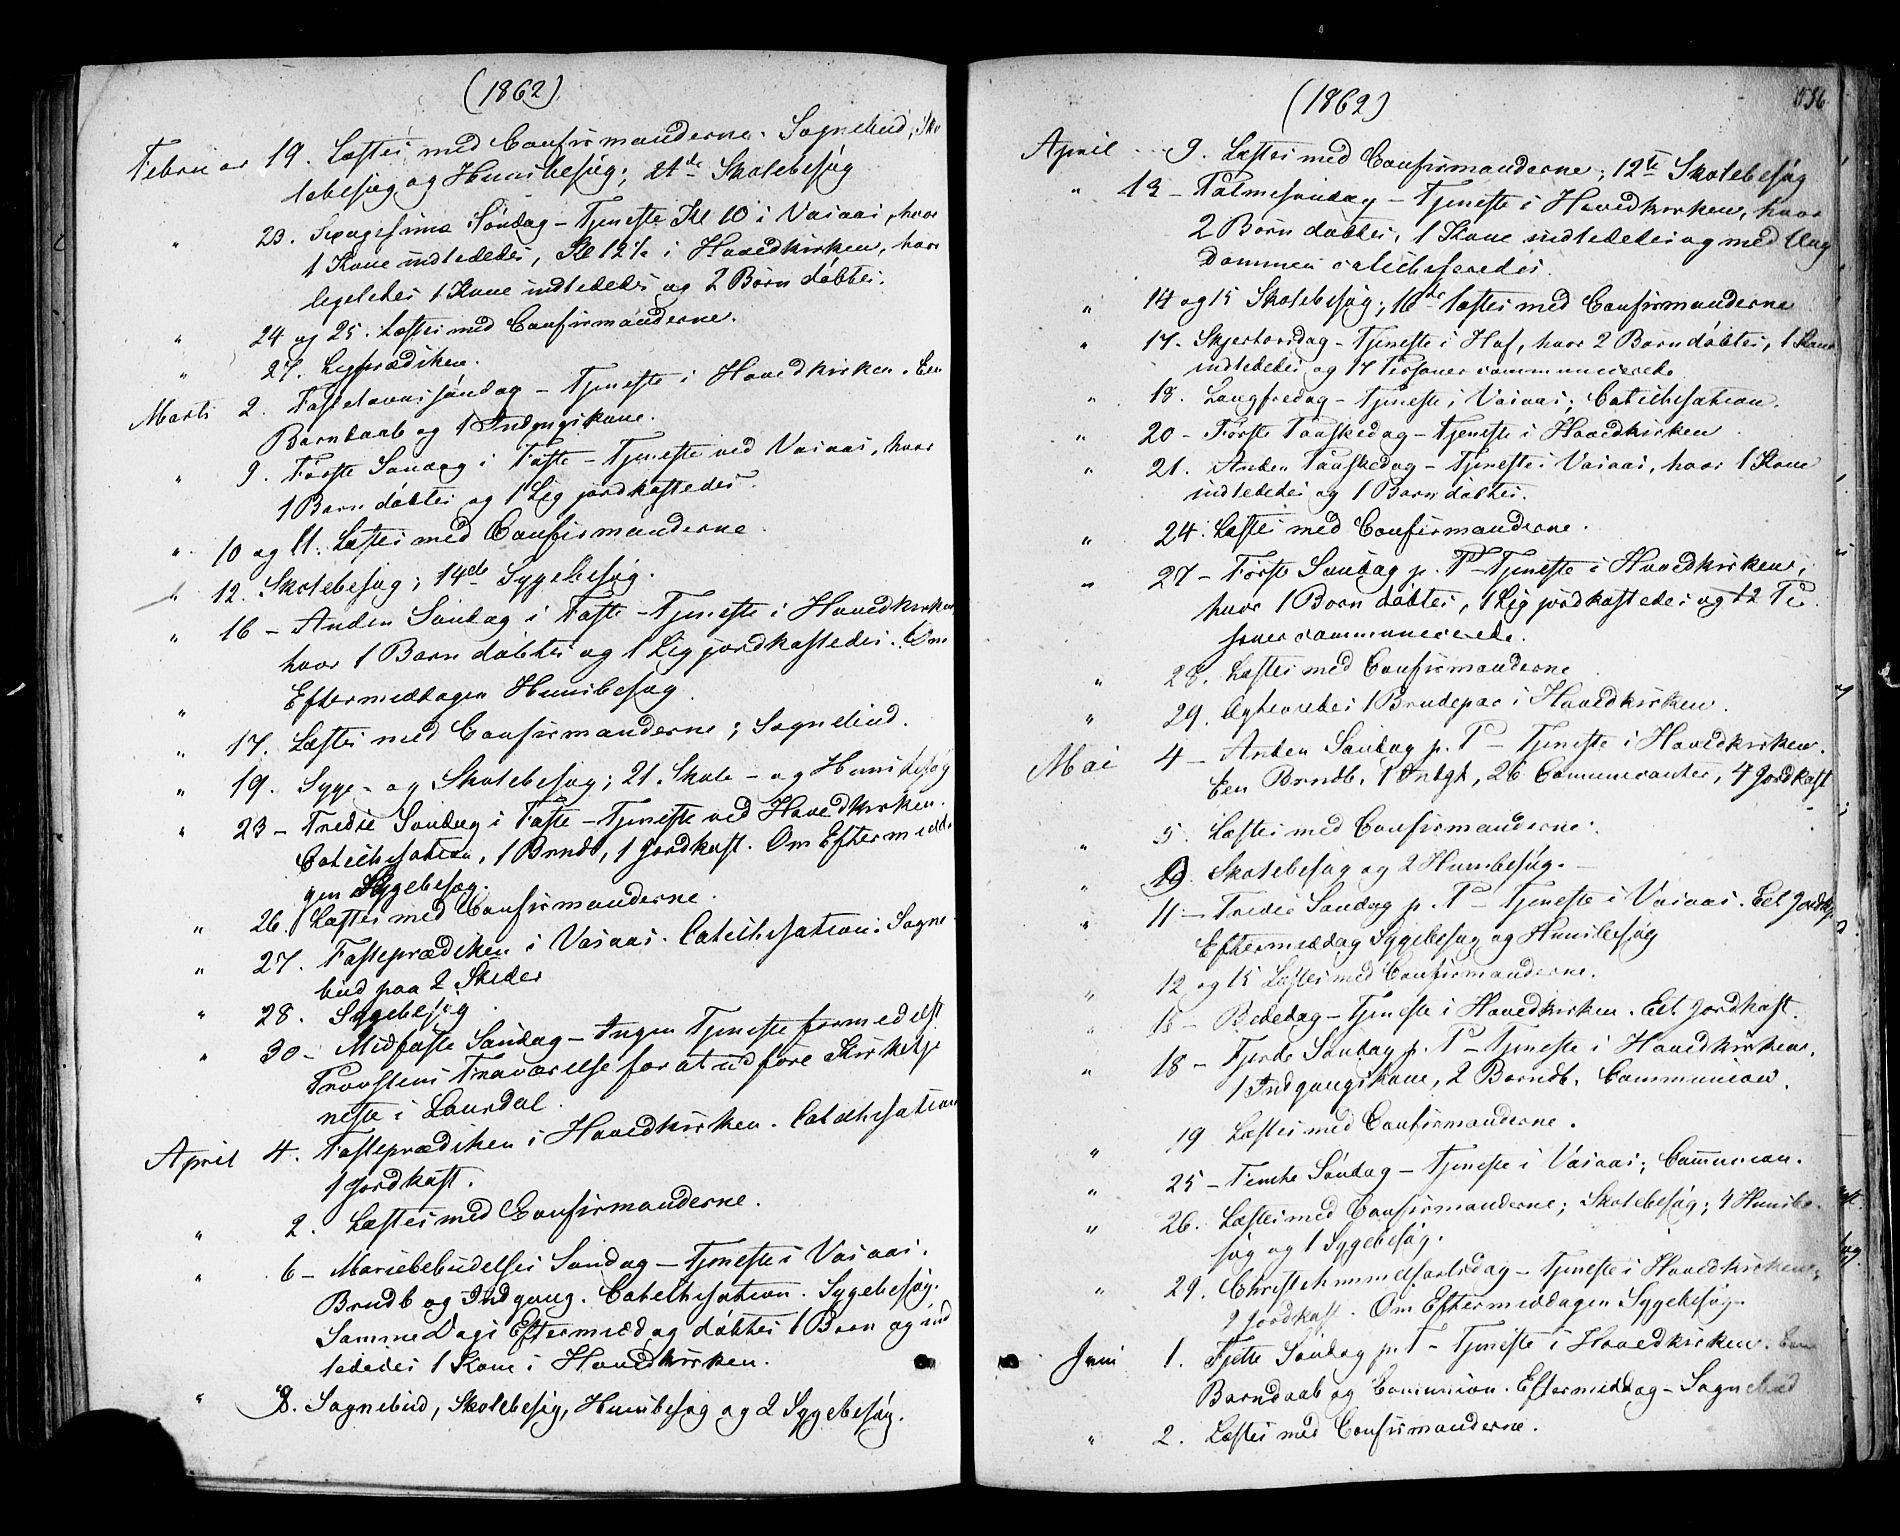 (1862)
Februar 19. Læstes med Confirmanderne. Sognebud, Sko
lebesøg og Huusbesøg; 21de Skolebesøg
" 23. Sexagesima Søndag – Tjeneste Kl 10 i Vasaas, hvor
1 Kone indlededes, Kl 12½ i Hovedkirken, hvor
ligeledes 1 Kone indlededes og 2 Børn døbtes.
" 24 og 25. Læstes med Confirmanderne.
" 27. Ligprædiken.
Marts 2. Fastelavnssøndag – Tjeneste i Hovedkirken. Een
Barnedaab og 1 Indgangskone.
" 9. Første Søndag i Faste – Tjeneste ved Vasaas, hvor
1 Barn døbtes og 1 Lig jordkastedes.
" 10 og 11. Læstes med Confirmanderne.
" 12. Skolebesøg; 14de Sygebesøg.
" 16 – Anden Søndag i Faste – Tjeneste i Hovedkirken
hvor 1 Barn døbtes og 1 Lig jordkastedes. Om
" Eftermiddagen Huusbesøg
" 17. Læstes med Confirmanderne; Sognebud.
" 19. Syge- og Skolebesøg; 21. Skole- og Huusbesøg
" 23 – Tredie Søndag i Faste – Tjeneste ved Hovedkirken.
Catechisation, 1 Brndb, 1 Jordkast. Om Eftermidda
gen Sygebesøg.
" 26. Læstes med Confirmanderne.
" 27. Fasteprædiken i Vasaas. Catechisation. Sogne-
bud paa 2 Steder
" 28. Sygebesøg
" 30 – Midfaste Søndag – Ingen Tjeneste formedelst
Provstens Fraværelse for at udføre Kirketje
neste i Laurdal.
April 4. Fasteprædiken i Hovedkirken. Catechisation
1 Jordkast.
" 2. Læstes med Confirmanderne.
" 6 – Mariebebudelses Søndag – Tjeneste i Vasaas.
Brndb og Indgang. Catechisation. Sygebesøg.
Samme Dags Eftermiddag døbtes 1 Barn og ind
lededes 1 Kone i Hovedkirken.
" 8. Sognebud, Skolebesøg, Huusbesøg og 2 Sygebesøg.
(1862)
April 9. Læstes med Confirmanderne; 12te Skolebesøg
" 13 – Palmesøndag – Tjeneste i Hovedkirken, hvor
2 Børn døbtes, 1 Kone indlededes og med Ung
dommen catechiseredes.
" 14 og 15 Skolebesøg; 16de læstes med Confirmanderne
" 17. Skjertorsdag – Tjeneste i Hof, hvor 2 Børn døbtes, 1 Kone
indlededes og 17 Personer communicerede.
" 18. Langfredag – Tjeneste i Vasaas; Catechisation.
" 20 – Første Paaskedag – Tjeneste i Hovedkirken
" 21. Anden Paaskedag – Tjeneste i Vasaas, hvor 1 Kone
indlededes og 1 Barn døbtes.
" 24. Læstes med Confirmanderne.
" 27 – Første Søndag p. P – Tjeneste i Hovedkirken,
hvor 1 Barn døbtes, 1 Lig jordkastedes og 12 Per
soner communicerede.
" 28. Læstes med Confirmanderne
" 29. Ægteviedes 1 Brudepar i Hovedkirken.
Mai 4 – Anden Søndag p. P – Tjeneste i Hovedkirken.
Een Brndb, 1 Indgk, 26 Communicanter, 4 Jordkast
" 5. Læstes med Confirmanderne.
" Skolebesøg og 2 Huusbesøg. –
" 11 – Tredie Søndag p. P – Tjeneste i Vasaas. Eet Jordk.
Eftermiddag Sygebesøg og Huusbesøg
" 12 og 15 Læstes med Confirmanderne.
" – Bededag – Tjeneste i Hovedkirken. Eet Jordkast.
" 18 – Fjerde Søndag p. P – Tjeneste i Hovedkirken.
1 Indgangskone, 2 Barndb. Communion.
" 19 Læstes med Confirmanderne.
" 25 – Femte Søndag – Tjeneste i Vasaas; Communion.
" 26. Læstes med Confirmanderne; Skolebesøg; 4 Huusbe-
søg og 1 Sygebesøg.
" 29. Christi himmelfartsdag – Tjeneste i Hovedkirken,
2 Jordkast. Om Eftermiddagen Sygebesøg
Juni 1. Sjette Søndag p. P – Tjeneste i Hovedkirken. Een
Barnedaab og Communion. Eftermiddag – Sognebud
" 2. Læstes med Confirmanderne.